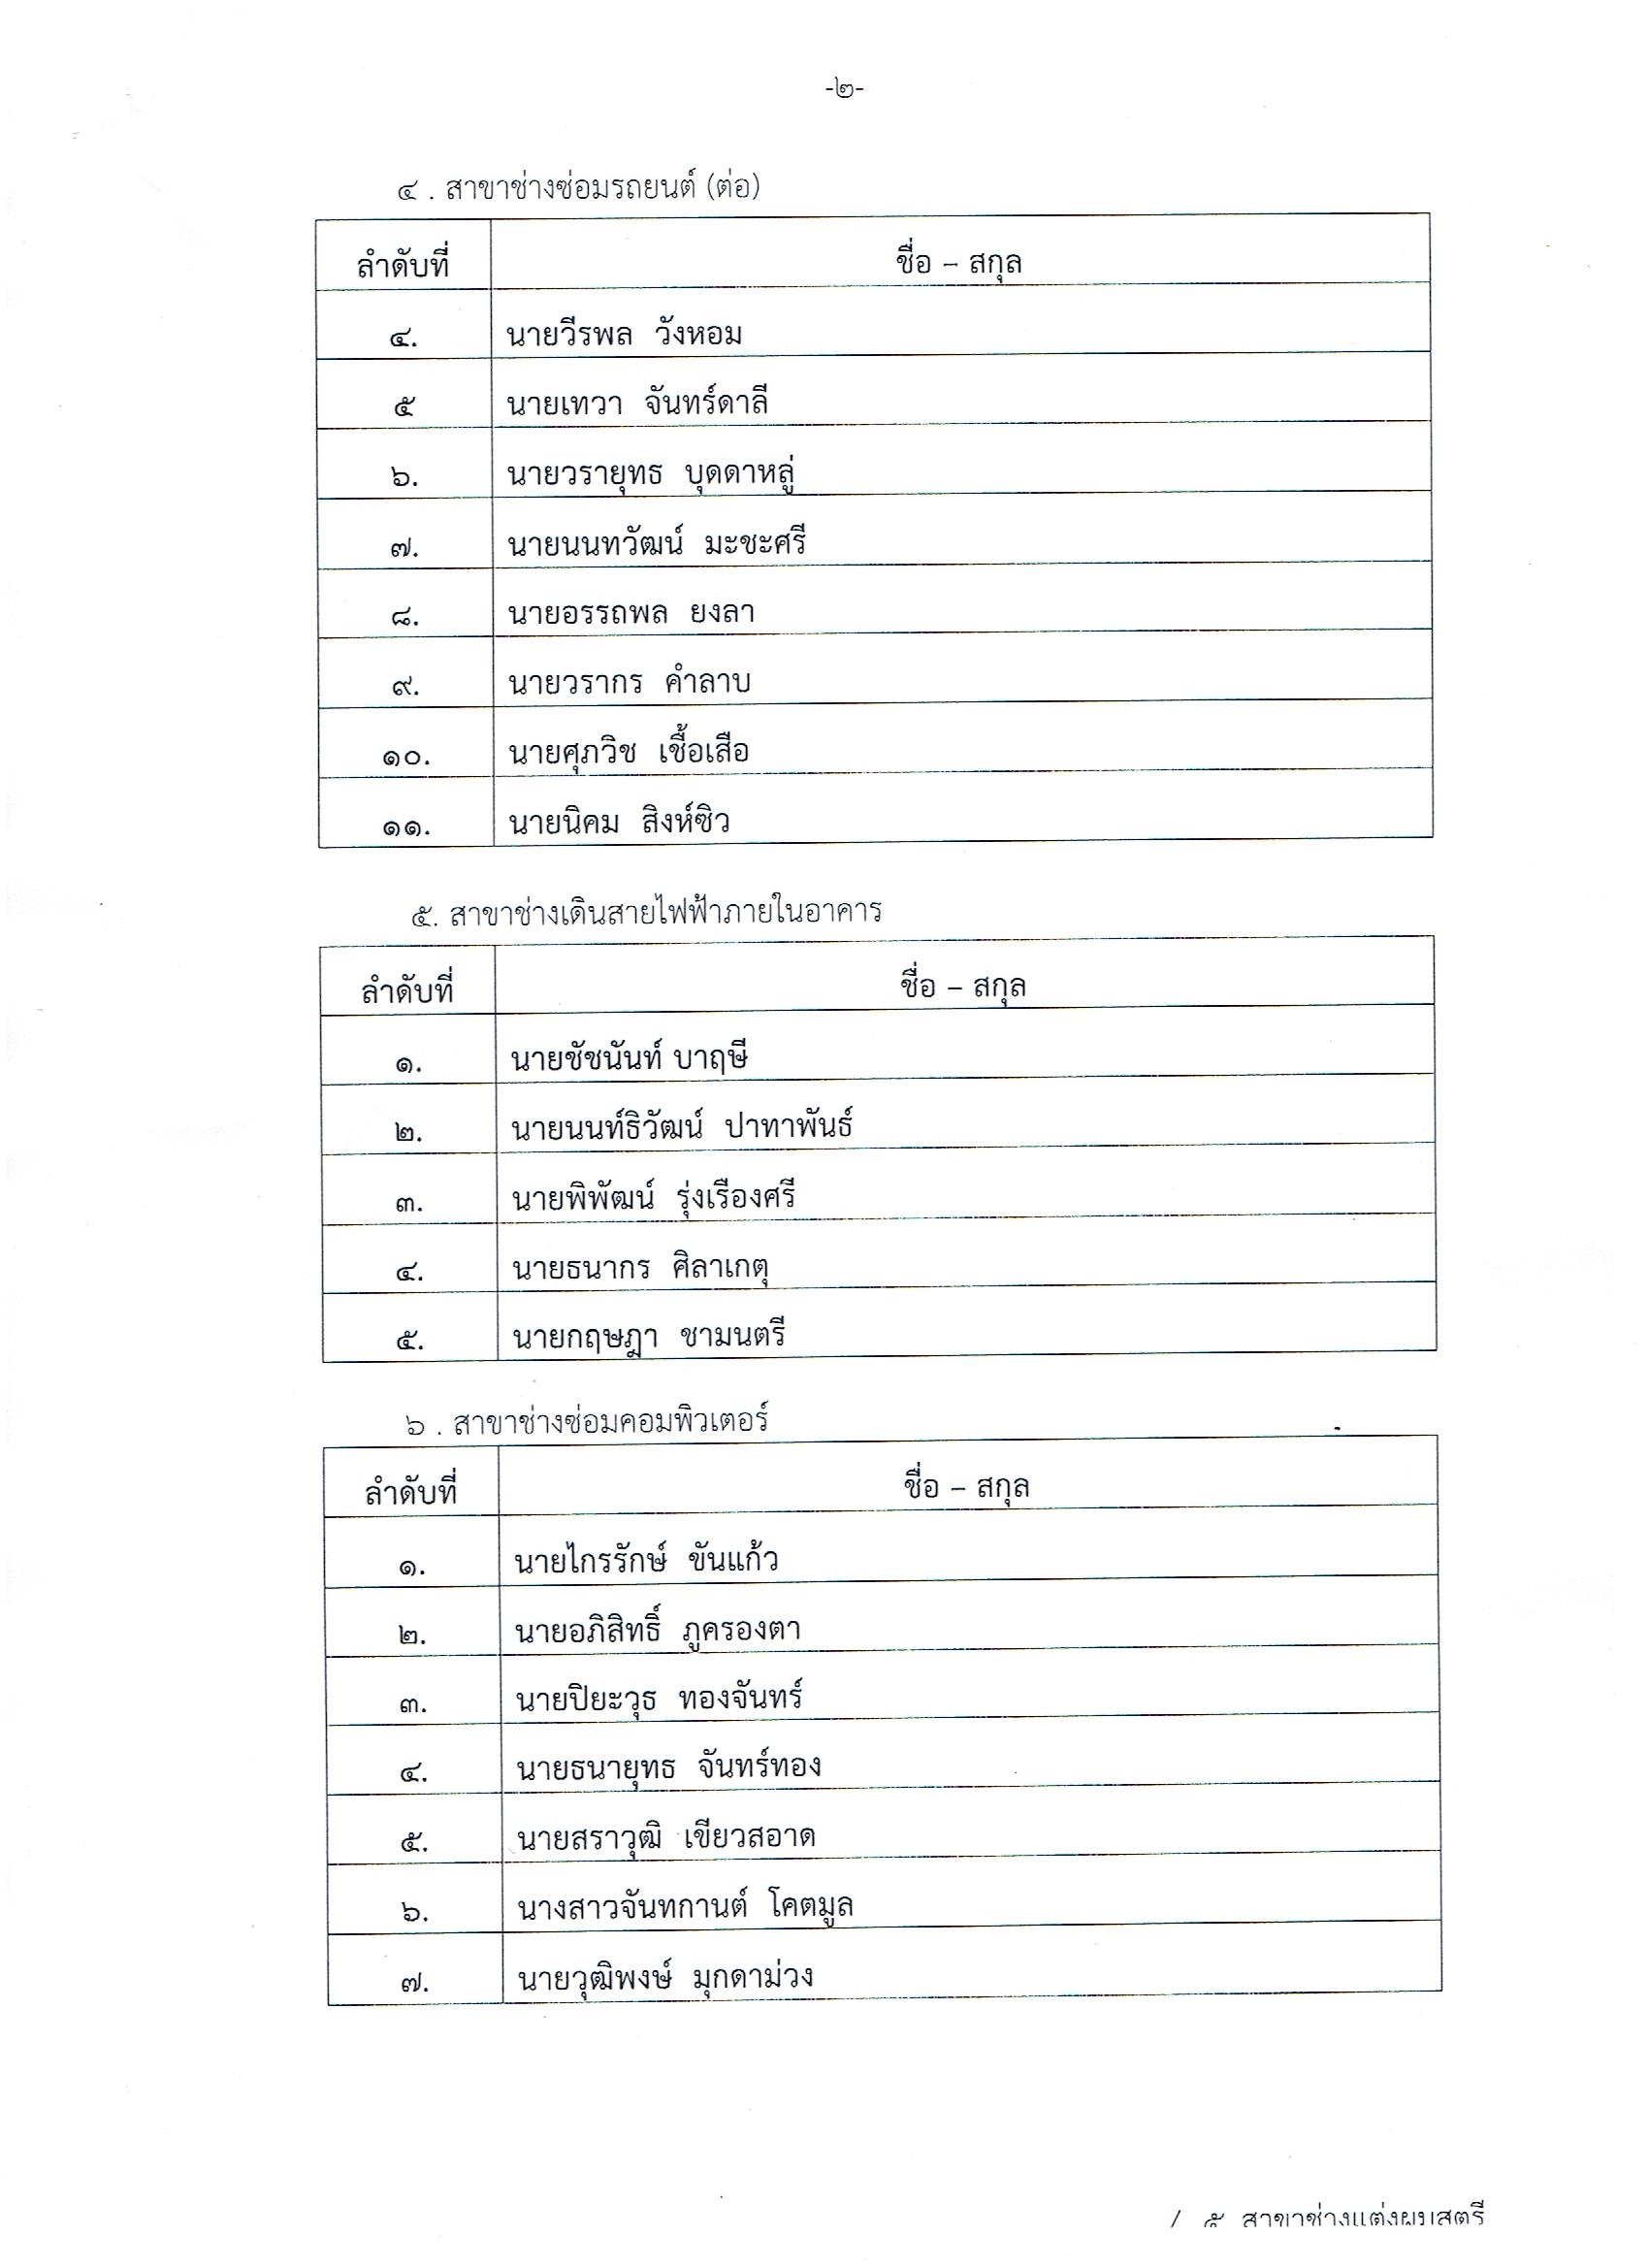 -๒-
๔ . สาขาช่างซ่อมรถยนต์ (ต่อ)
ลำดับที่ ชื่อ – สกุล
๔. นายวีรพล วังหอม
๕ นายเทวา จันทร์ดาลี
๖. นายวรายุทธ บุดดาหลู่
๗. นายนนทวัฒน์ มะชะศรี
๘. นายอรรถพล ยงลา
๙. นายวรากร คำลาบ
๑๐. นายศุภวิช เชื้อเสือ
๑๑. นายนิคม สิงห์ซิว
๕. สาขาช่างเดินสายไฟฟ้าภายในอาคาร
ลำดับที่ ชื่อ – สกุล
๑. นายชัชนันท์ บาฤษี
๒. นายนนท์ธิวัฒน์ ปาทาพันธ์
๓. นายพิพัฒน์ รุ่งเรืองศรี
๔. นายธนากร ศิลาเกตุ
๕. นายกฤษฎา ชามนตรี
๖ . สาขาช่างซ่อมคอมพิวเตอร์
ลำดับที่ ชื่อ – สกุล
๑. นายไกรรักษ์ ขันแก้ว
๒. นายอภิสิทธิ์ ภูครองตา
๓. นายปิยะวุธ ทองจันทร์
๔. นายธนายุทธ จันทร์ทอง
๕. นายสราวุฒิ เขียวสอาด
๖. นางสาวจันทกานต์ โคตมูล
๗. นายวุฒิพงษ์ มุกดาม่วง
/ ๕ สาขาช่างแต่งผมสตรี